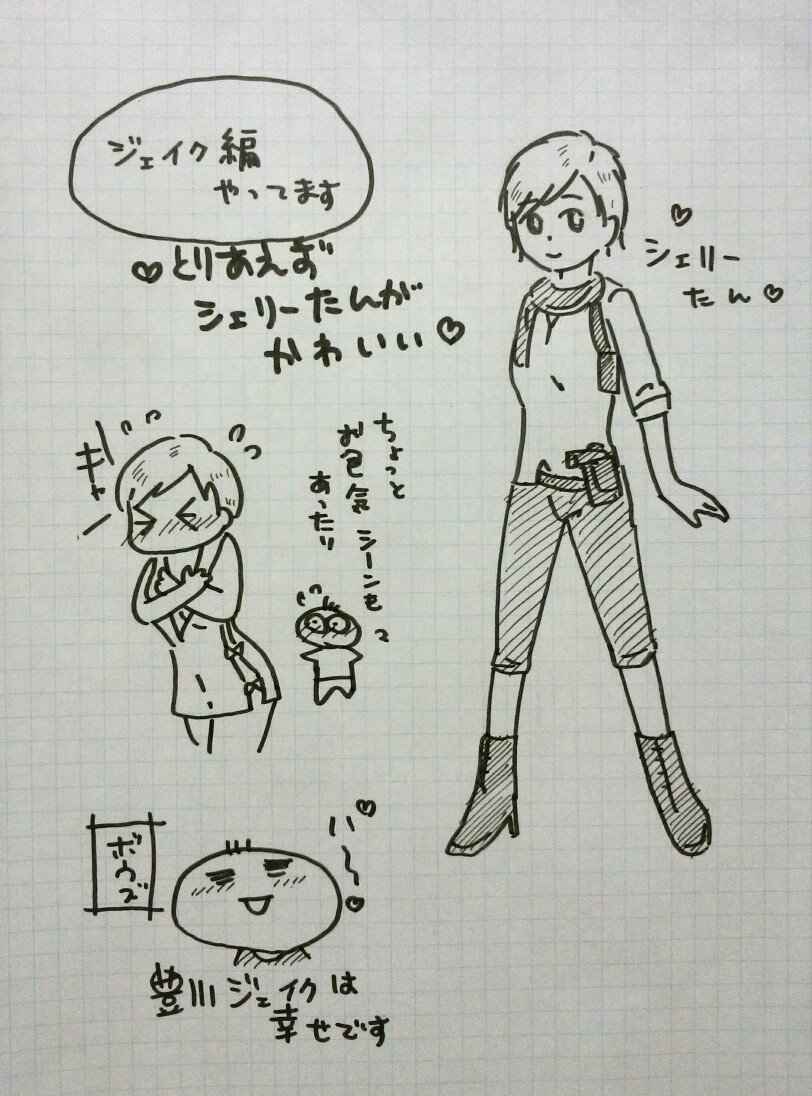 ジェイク編
やってます
♡とりあえず
シェリーたんが
かわいい♡
♡
シェリー
たん♡
キャー
ちょっと
お色気シーンも
あったり
ボウズ
い〜♡
豊川ジェイクは
幸せです